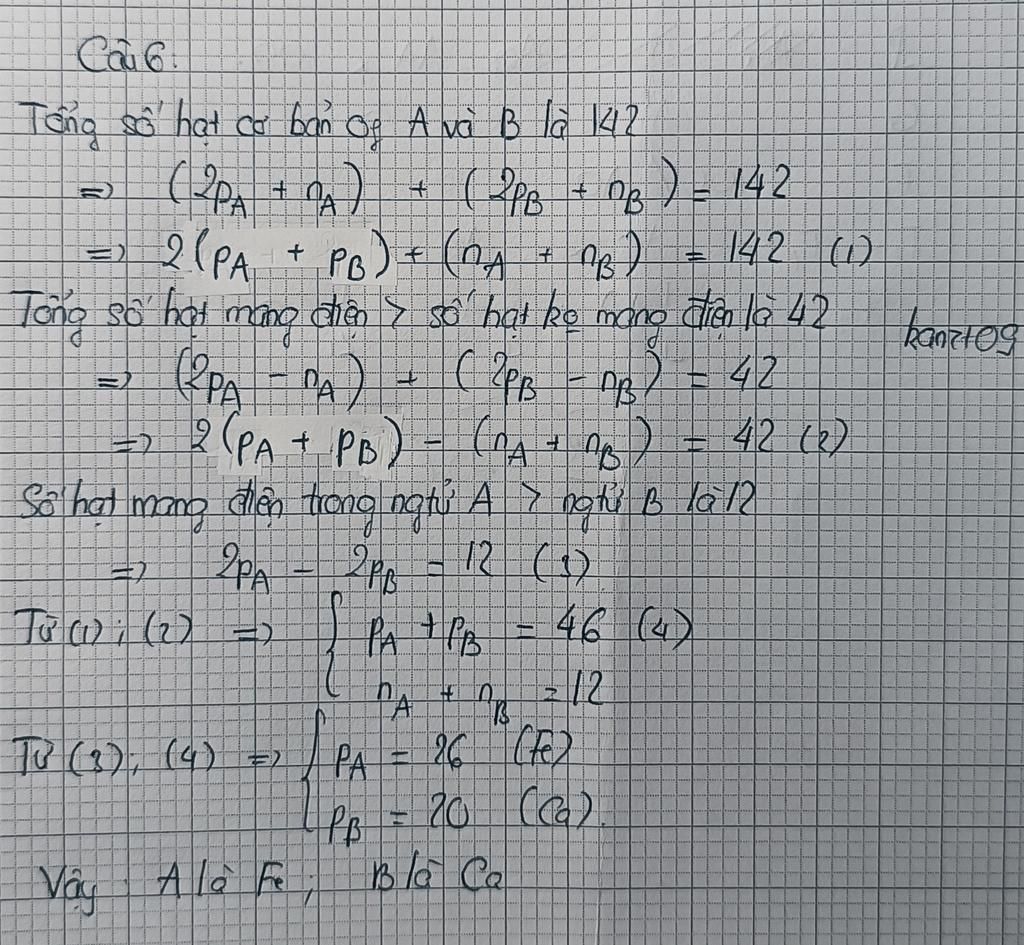 Câu 6:
Tổng số hạt cơ bản of A và B là 142
=> (2pA + nA) + (2pB + nB) = 142
=> 2(pA + pB) + (nA + nB) = 142 (1)
Tổng số hạt mang điện > số hạt ko mang điện là 42
kanzt09
=> (2pA - nA) + (2pB - nB) = 42
=> 2(pA + pB) - (nA + nB) = 42 (2)
Số hạt mang điện trong ngtử A > ngtử B là 12
=> 2pA - 2pB = 12 (3)
Từ (1); (2) => { pA + pB = 46 (4)
nA + nB = 12
Từ (3); (4) => { pA = 26 (Fe)
pB = 20 (Ca).
Vậy A là Fe; B là Ca